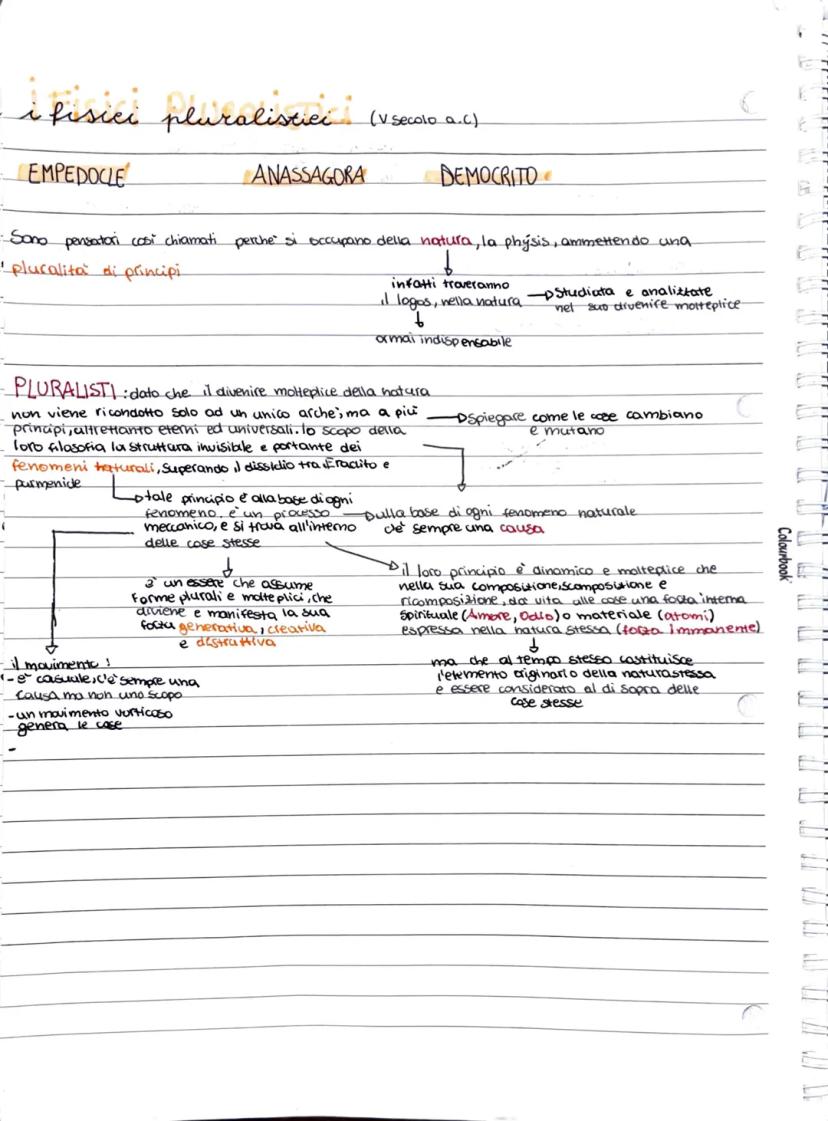 i Fisici Pluralistici
i fisici pluralistici (V secolo a.C)
EMPEDOCLE ANASSAGORA DEMOCRITO
Sono pensatori così chiamati perchè si occupano della natura, la phýsis, ammettendo una
pluralità di principi
infatti troveranno
il logos, nella natura
studiata e analizzata
nel suo divenire molteplice
ormai indispensabile
PLURALISTI: dato che il divenire molteplice della natura
non viene ricondotto solo ad un unico archè, ma a più
principi, altrettanto eterni ed universali. lo scopo della
loro filosofia la struttura invisibile e portante dei
fenomeni naturali, superando il dissidio tra Eraclito e
parmenide
spiegare come le cose cambiano
e mutano
tale principio è alla base di ogni
fenomeno, è un processo
meccanico, e si trova all'interno
delle cose stesse
sulla base di ogni fenomeno naturale
c'è sempre una causa
è un essere che assume
forme plurali e molteplici, che
diviene e manifesta la sua
forza generativa, creativa
e distruttiva
il loro principio è dinamico e molteplice che
nella sua composizione, scomposizione e
ricomposizione, da vita alle cose una forza interna
spirituale (Amore, Odio) o materiale (atomi)
espressa nella natura stessa (forza immanente)
ma che al tempo stesso costituisce
l'elemento originario della natura stessa
e essere considerato al di sopra delle
cose stesse
il movimento:
- è casuale, c'è sempre una
causa ma non uno scopo
- un movimento vorticoso
genera le cose
-
Colourbook